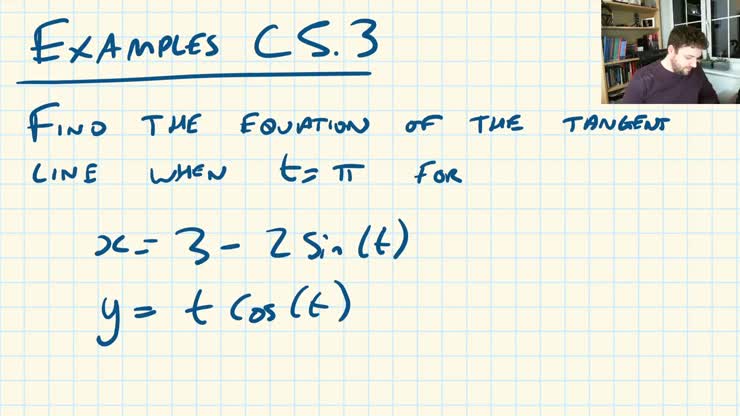 EXAMPLES C5.3
FIND THE EQUATION OF THE TANGENT
LINE WHEN t=π FOR
x= 3 - 2 sin(t)
y= t cos(t)